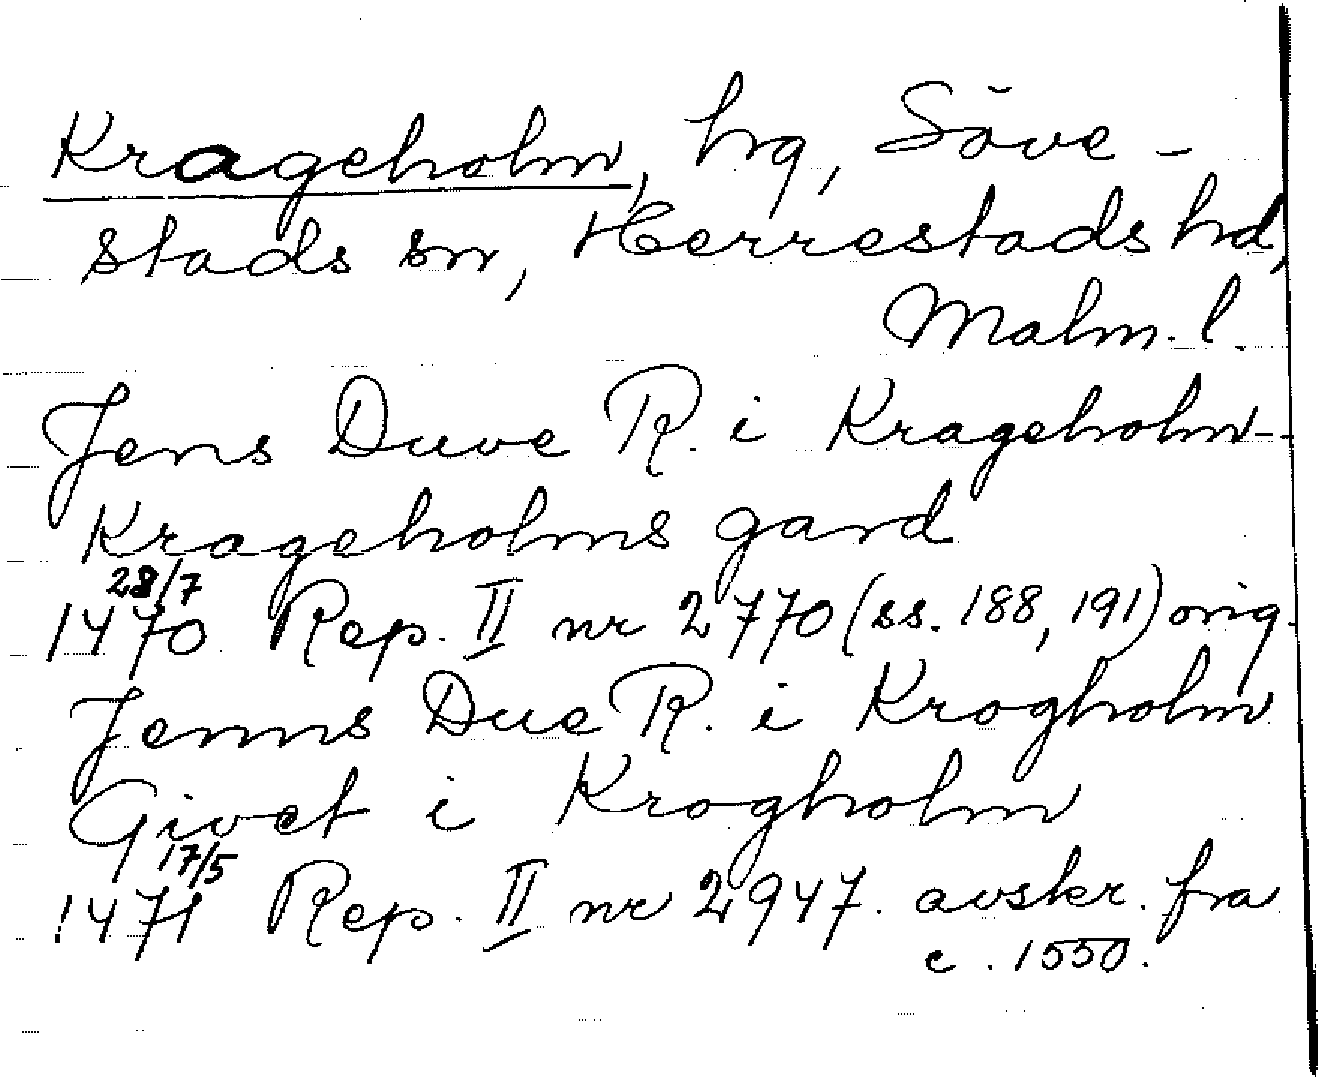 Krageholm, hrg, Söve-
stads sn, Herrestads hd,
Malm. l.
Jens Duve R. i Krageholm -
Krageholms gard
28/7
1470 Rep. II nr 2770 (ss. 188, 191) orig.
Jenns Due R. i Krogholm
Givet i Krogholm
17/5
1471 Rep. II nr 2947. avskr. fra
c. 1550.